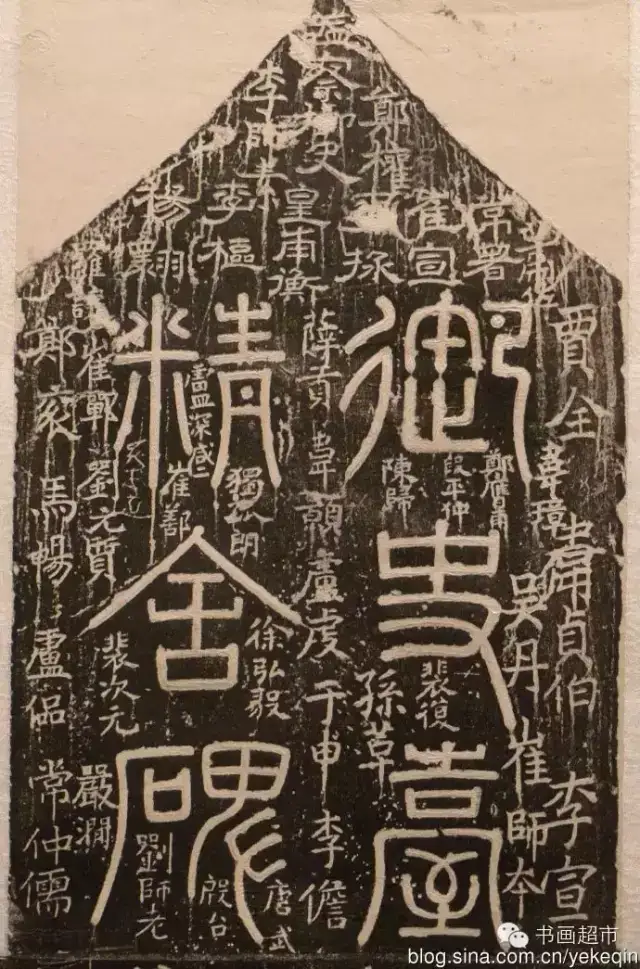 監察御史
鄭權
李師素
常著
崔宣
皇甫衡
李樞
御史臺
精舍碑
賈全 韋貞伯 李宣
韋璋 吳丹 崔師本
鄭膺甫
段平仲
陳歸
裴復
孫革
薛貢 韋顗 盧虔 于申 李儋
獨孤朗
徐弘毅
唐武
殷台
崔鄯
裴次元
劉師老
劉元質
嚴澗
馬暢
常仲儒
书画超市
blog.sina.com.cn/yekeqin